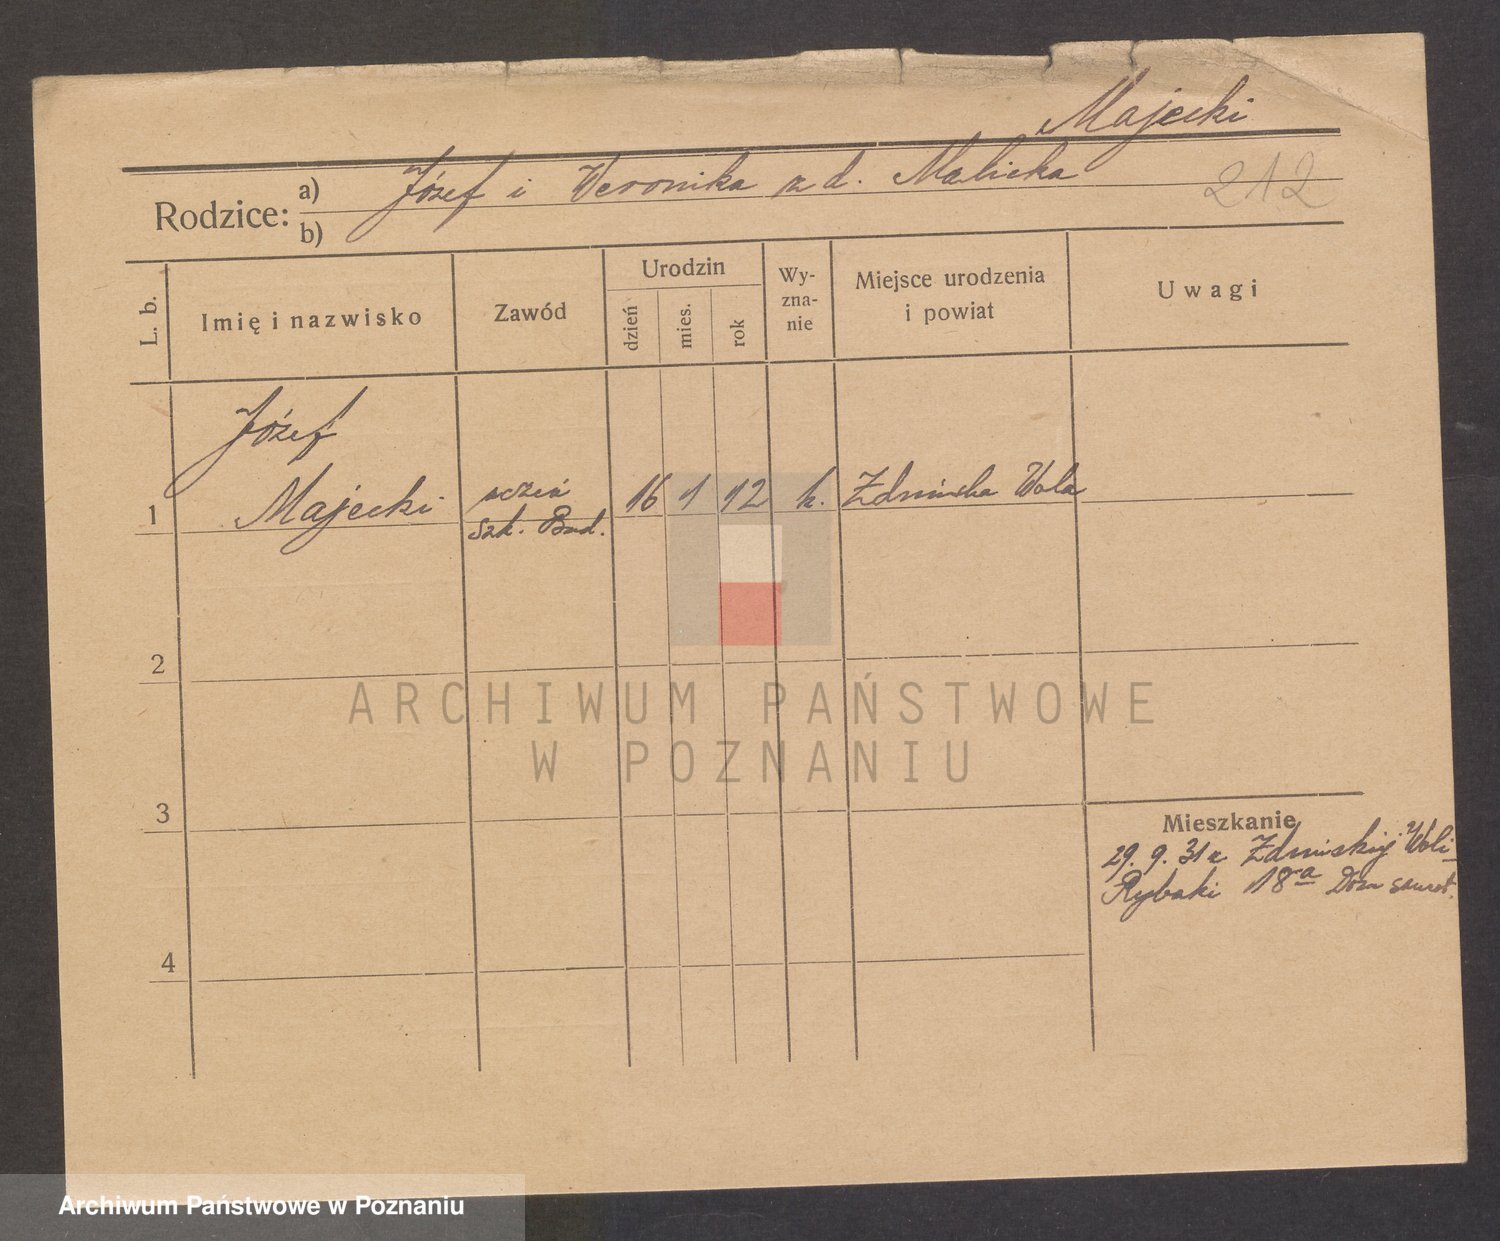 Majecki
Rodzice: a) Józef i Weronika z d. Malicka
b)
212
L. b.
Imię i nazwisko
Zawód
Urodzin
dzień
mies.
rok
Wy-
zna-
nie
Miejsce urodzenia
i powiat
Uwagi
Józef
1 Majecki
uczeń
szk. Bud.
16 1 12 k. Zduńska Wola
2
3
4
Mieszkanie
29. 9. 31 z Zduńskiej Woli
Rybaki 18a Dom
ARCHIWUM PAŃSTWOWE
W POZNANIU
Archiwum Państwowe w Poznaniu